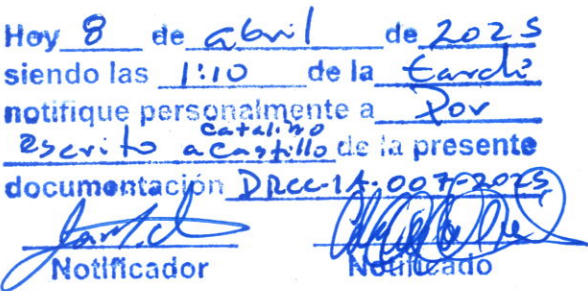 Hoy 8 de abril de 2025
siendo las 1:10 de la tarde
notifique personalmente a Por
Escrito a Catalino Castillo de la presente
documentación DRCC-IA-007-2025
Notificador Notificado